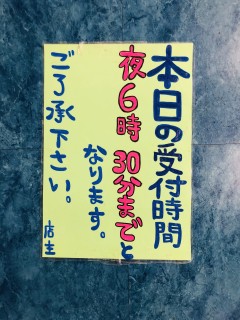 本日の受付時間
夜6時30分までと
なります。
ご了承下さい。
店主